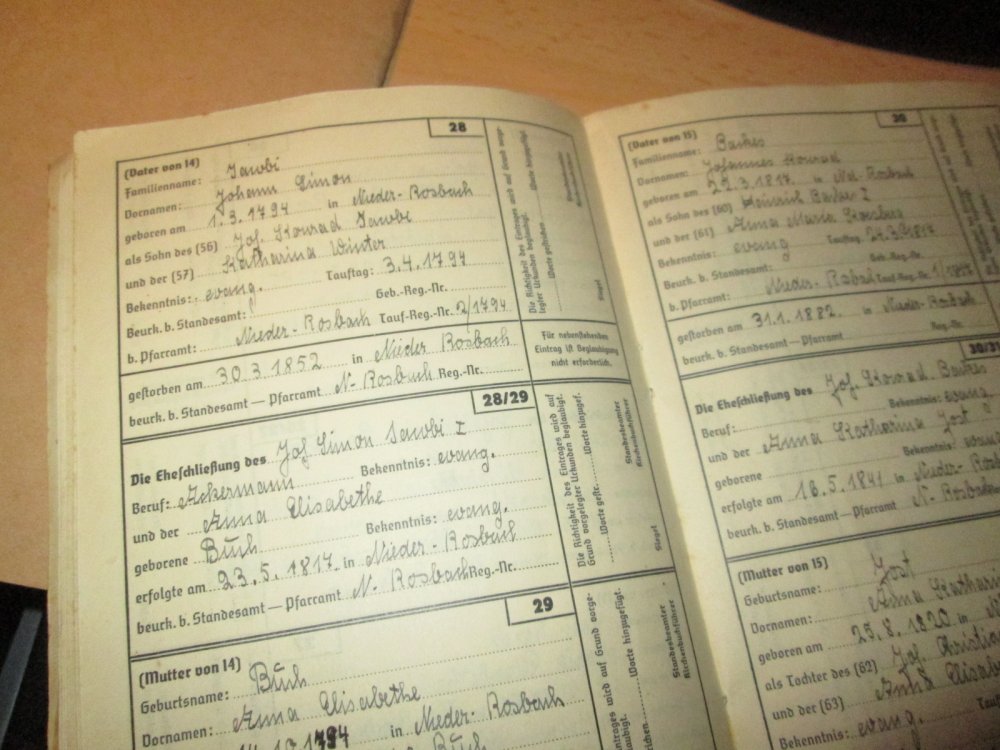 28
(Vater von 14)
Familienname: Jacobi
Vornamen: Johann Simon
geboren am 1.3.1794 in Nieder-Rosbach
als Sohn des (56) Joh. Konrad Jacobi
und der (57) Katharina Winter
Bekenntnis: evang. Tauftag: 3.4.1794
Beurk. b. Standesamt: Geb.-Reg.-Nr.
b. Pfarramt: Nieder-Rosbach Tauf-Reg.-Nr. 2/1794
gestorben am 30.3.1852 in Nieder Rosbach
beurk. b. Standesamt — Pfarramt N-Rosbach Reg.-Nr.
Die Richtigkeit des Eintrages wird auf Grund vorge-
legter Urkunden beglaubigt. Worte gestrichen
Siegel
Für nebenstehenden
Eintrag ist Beglaubigung
nicht erforderlich.
28/29
Die Eheschließung des Joh Simon Jacobi I
Beruf: Ackermann Bekenntnis: evang.
und der Anna Elisabethe
geborene Buch Bekenntnis: evang.
erfolgte am 23.5.1817 in Nieder-Rosbach
beurk. b. Standesamt — Pfarramt N. Rosbach Reg.-Nr.
Die Richtigkeit des Eintrages wird auf
Grund vorgelegter Urkunden beglaubigt.
Worte gestr. Worte hinzugef.
Standesbeamter
Kirchenbuchführer
Siegel
29
(Mutter von 14)
Geburtsname: Buch
Vornamen: Anna Elisabethe
1794 in Nieder-Rosbach
Buch
Eintrages wird auf Grund vorge-
Worte hinzugefügt.
Standesbeamter
Kirchenbuchführer
30
(Vater von 15)
Familienname: Backes
Vornamen: Johannes Konrad
geboren am 22.3.1817 in Nied-Rosbach
als Sohn des (60) Heinrich I
und der (61) Anna Maria
Bekenntnis: evang Tauftag
Beurk. b. Standesamt: Geb.-Reg.-Nr.
b. Pfarramt: Nieder-Rosbach Tauf-Reg.-Nr.
gestorben am 31.1.1882. in Nieder-Rosbach
beurk. b. Standesamt — Pfarramt Reg.-Nr.
Die Eheschließung des Joh. Konrad Backes
Beruf: Bekenntnis: evang.
und der Anna Katharina Jost
geborene Bekenntnis: evang
erfolgte am 16.5.1841 in Nieder-Ros
beurk. b. Standesamt — Pfarramt N-Rosbach
(Mutter von 15)
Geburtsname: Jost
Vornamen: Anna Kathari
geboren am 25.8.1820 in
als Tochter des (62) Joh. Christia
und der (63) Anna Elisab
Bekenntnis: evang.